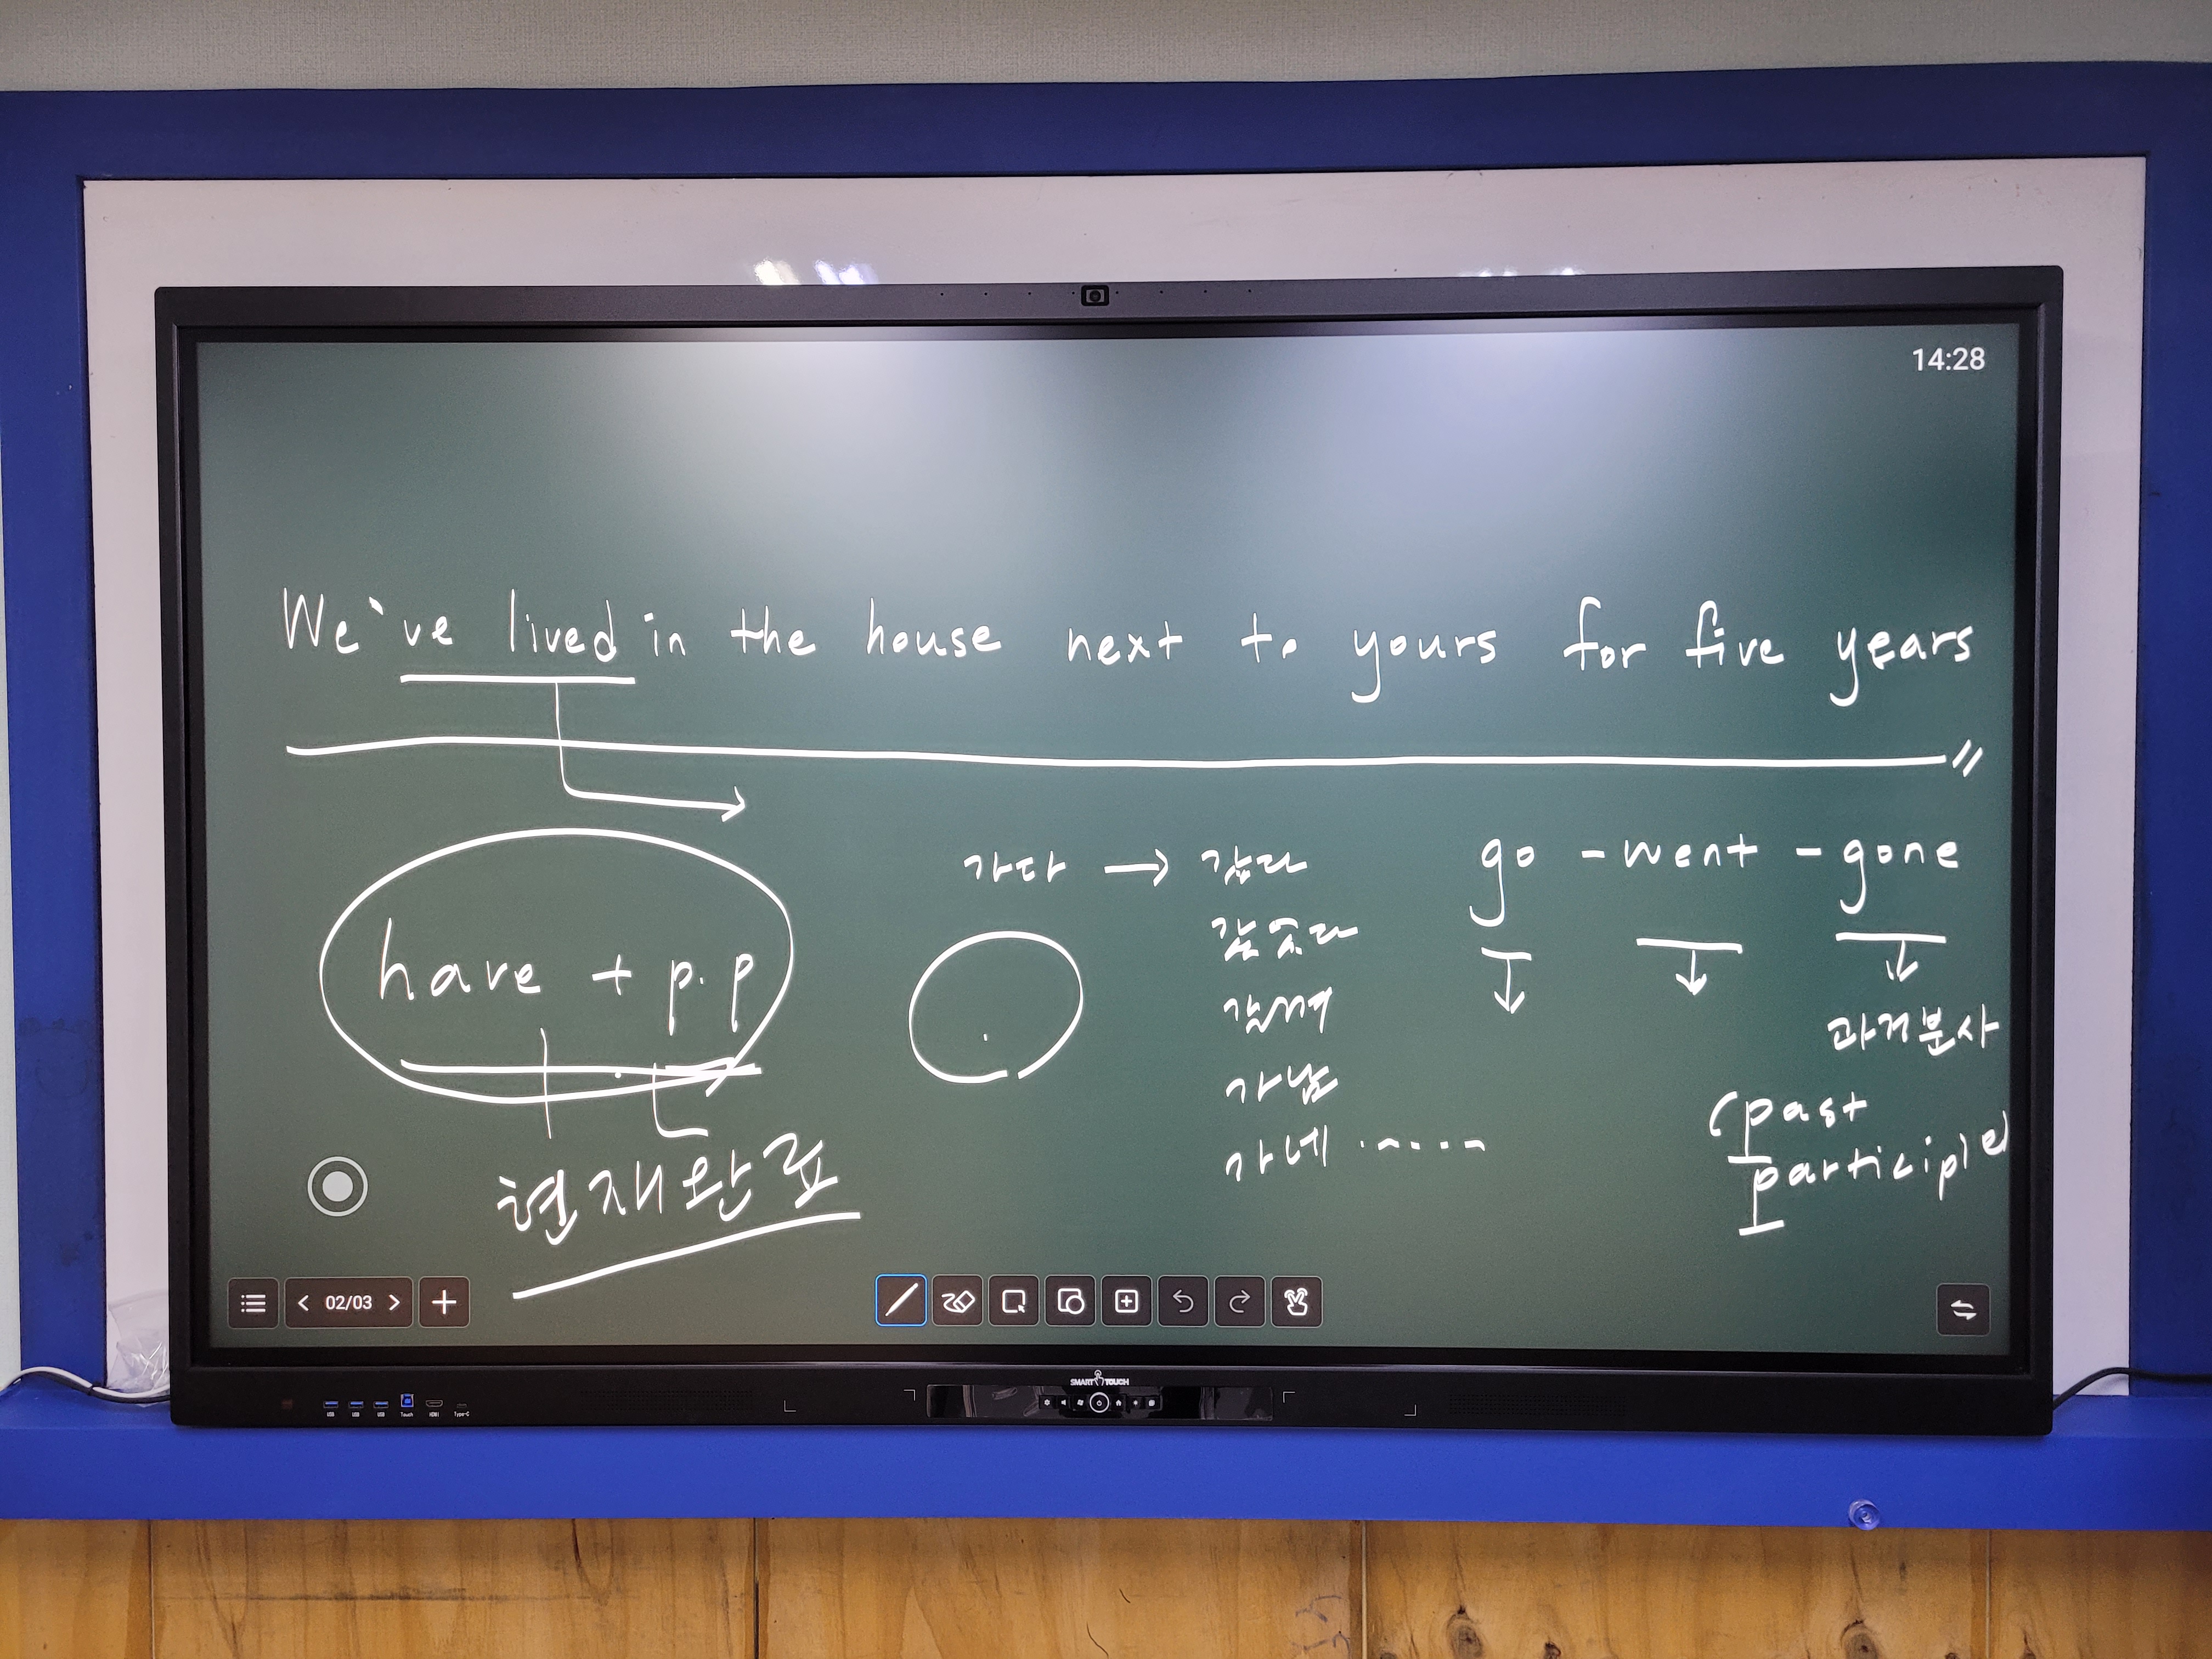 14:28
We've lived in the house next to yours for five years
have + p.p
현재완료
가다 → 갔다
갔었다
갈께
가네 ......
go - went - gone
과거분사
(past
participle)
02/03
SMART TOUCH
USB USB USB Touch HDMI Type-C